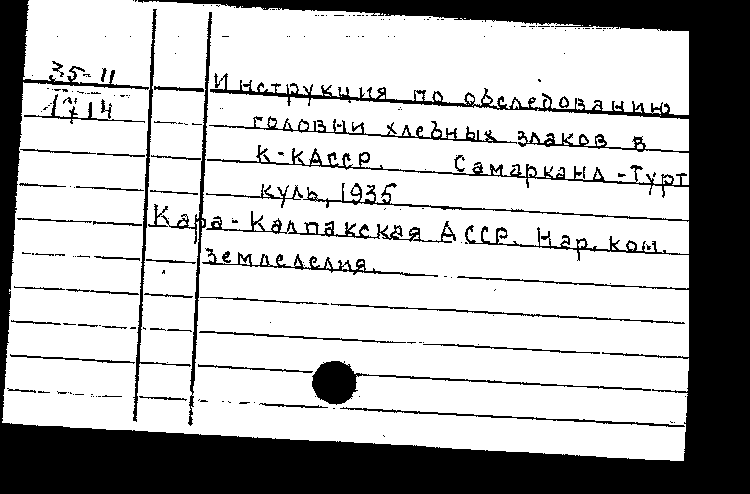 35-11
1714
Инструкция по обследованию
головни хлебных злаков в
К-КАССР. Самарканд-Турт
куль, 1935
Кара-Калпакская АССР. Нар. ком.
земледелия.